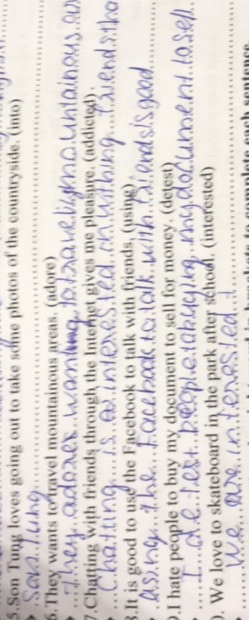 5.Son Tung loves going out to take some photos of the countryside. (into)
Son Tung
6.They wants to travel mountainous areas. (adore)
They adores wanting to travel by mountainous ar
7.Chatting with friends through the Internet gives me pleasure. (addicted)
Chatting is as interested in withing friends tha
8.It is good to use the Facebook to talk with friends. (using)
using the Facebook to talk with friends is good
9.I hate people to buy my document to sell for money. (detest)
I detest people to buying my document to sell
0. We love to skateboard in the park after school. (interested)
We are interested i
to complete each sentence